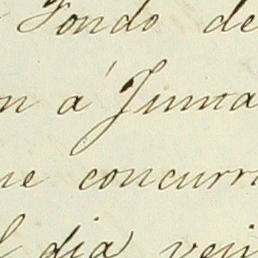 Fondo de
n á Junta
ue concurri
l dia vein